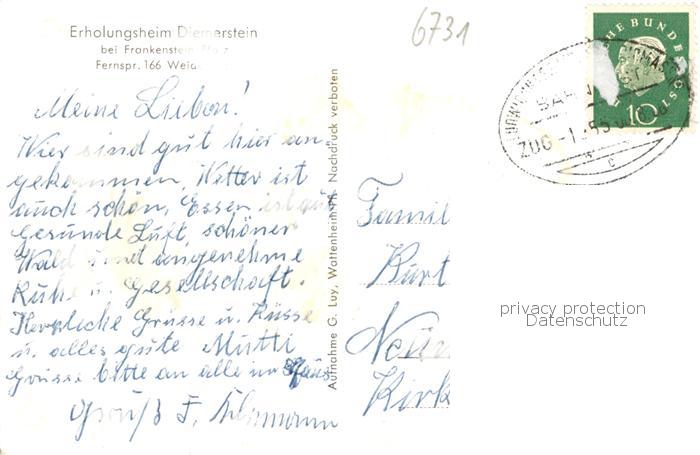 Erholungsheim Diemerstein
bei Frankenstein Pfalz
Fernspr. 166 Weid
6731
Meine Lieben!
Wir sind gut hier an-
gekommen, Wetter ist
auch schön, Essen ist gut
Gesunde Luft, schöner
Wald und angenehme
Ruhe u. Gesellschaft.
Herzliche Grüsse u. Küsse
u. alles gute Mutti
Grüsse bitte an alle im Haus
Gruß F.
Aufnahme G. Luy, Wattenheim Nachdruck verboten
Famil
Kurt
Neun
Kirk
HE BUNDESPOST
10
BAHNPOST
ZUG
c
privacy protection
Datenschutz